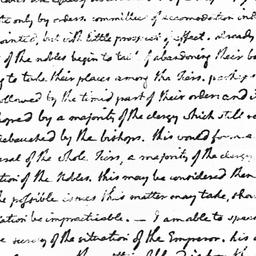 te only by orders. committees of accomodation inde
pointed, but with little prospect of effect. already
of the nobles begin to talk of abandoning their bo
g to take their places among the tiers. perhaps
ollowed by the timid part of their orders and i
honed by a majority of the clergy which still re
debauched by the bishops. this would form a
ersal of the whole Tiers, a majority of the clergy
tion of the Nobles. this may be considered then
the possible issues this matter may take, shou
iation be impracticable. — I am able to speak
e surery of the situation of the Emperor, his